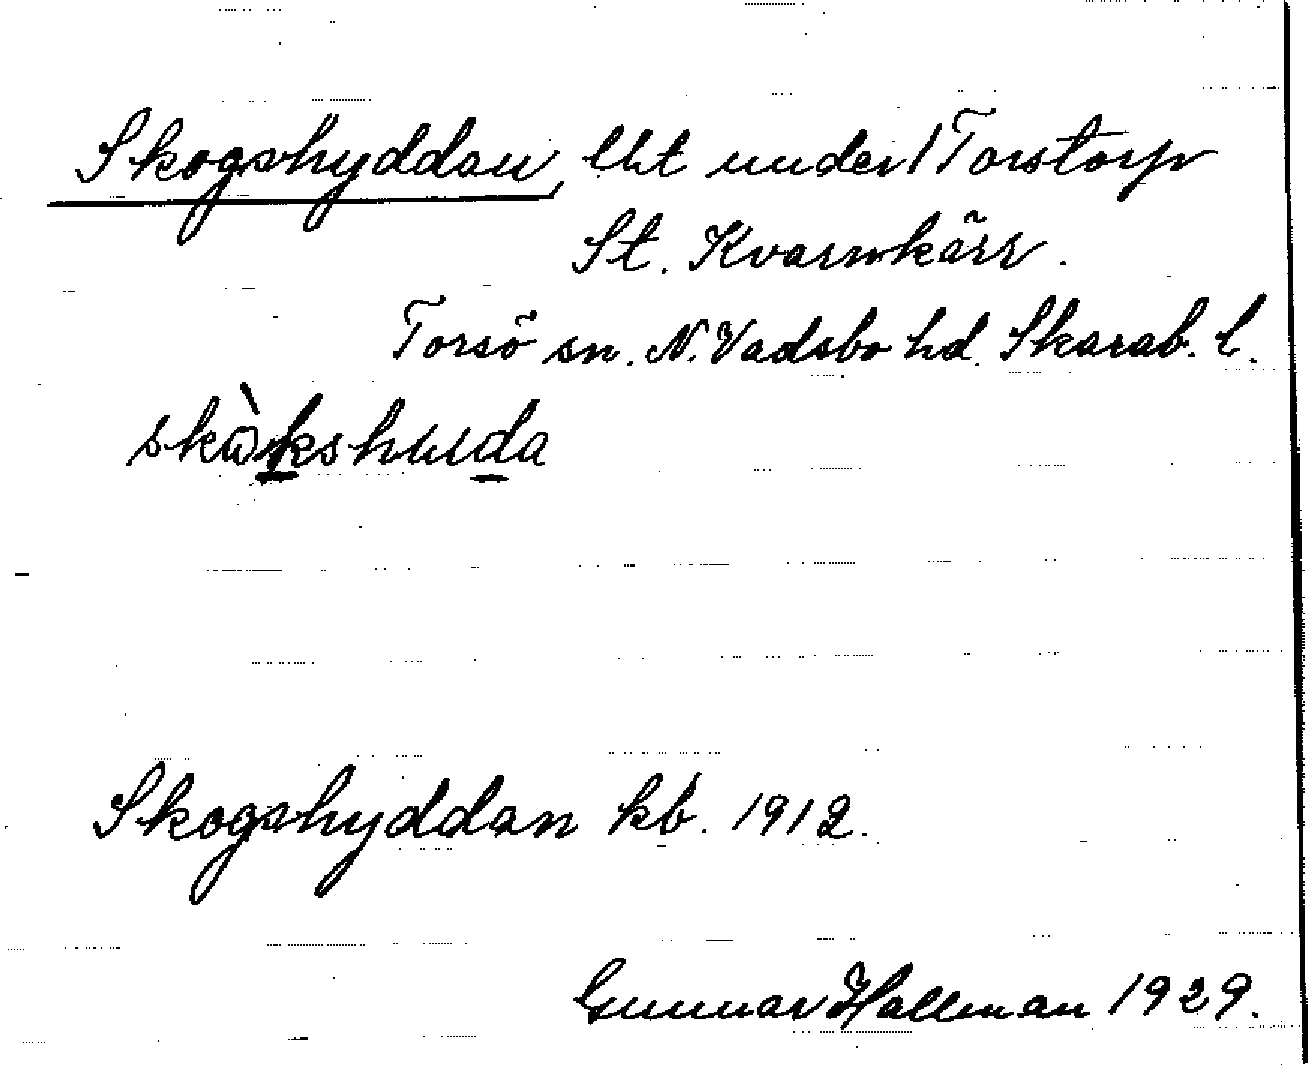 Skogshyddan, lht under 1 Torstorp
St. Kvarnkärr.
Torsö sn. N. Vadsbo hd. Skarab. l.
skὼkshuda
Skogshyddan kb. 1912.
Gunnar Hallman 1929.